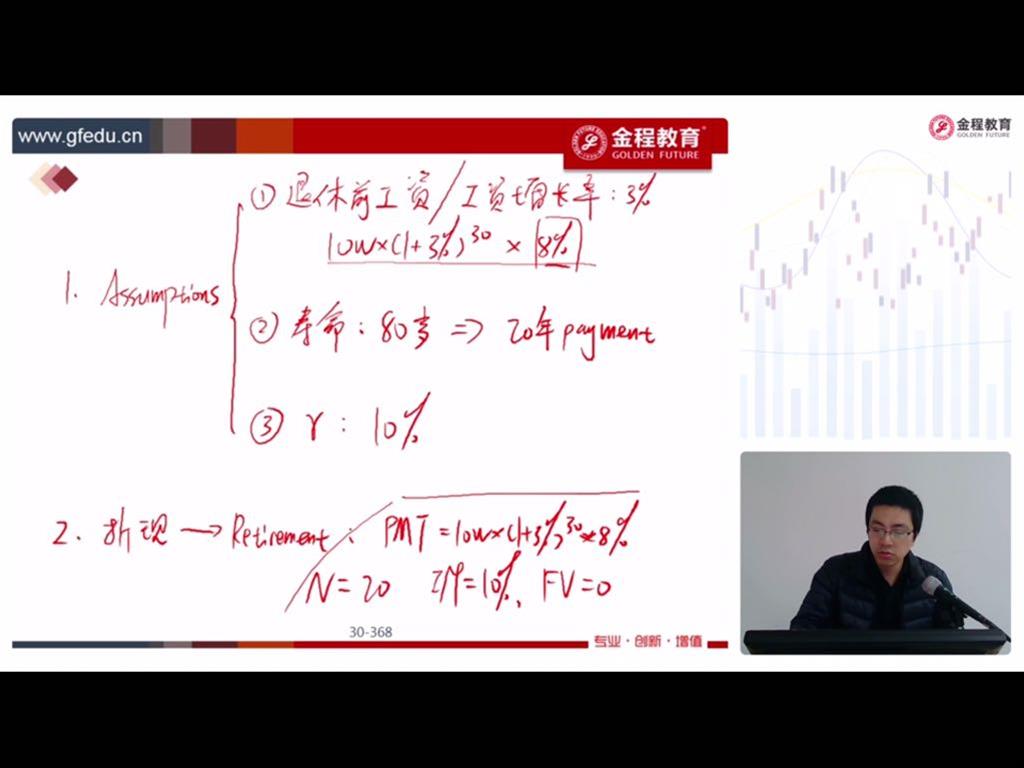 www.gfedu.cn
金程教育
GOLDEN FUTURE
金程教育
GOLDEN FUTURE
1. Assumptions
① 退休前工资/工资增长率:3%
10w×(1+3%)^30 × 8%
② 寿命:80岁 => 20年payment
③ r: 10%
2. 折现 → Retirement: PMT=10w×(1+3%)^30×8%
N=20 I/Y=10%, FV=0
30-368
专业·创新·增值